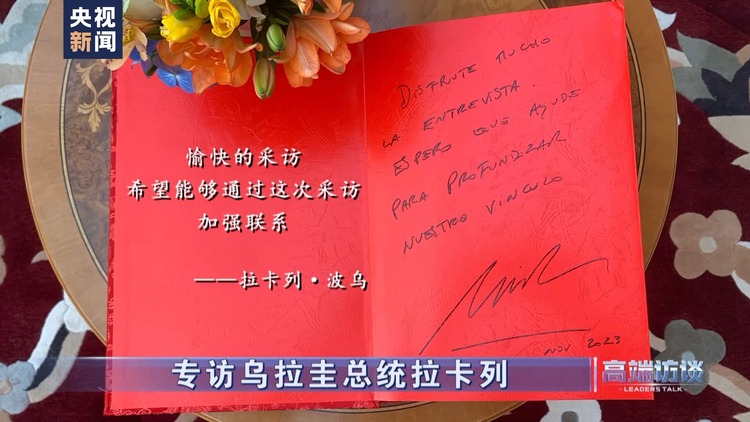 央视
新闻
愉快的采访
希望能够通过这次采访
加强联系
——拉卡列·波乌
DISFRUTE MUCHO
LA ENTREVISTA.
ESPERO QUE AYUDE
PARA PROFUNDIZAR
NUESTRO VINCULO
NOV 2023
专访乌拉圭总统拉卡列
高端访谈
LEADERS TALK